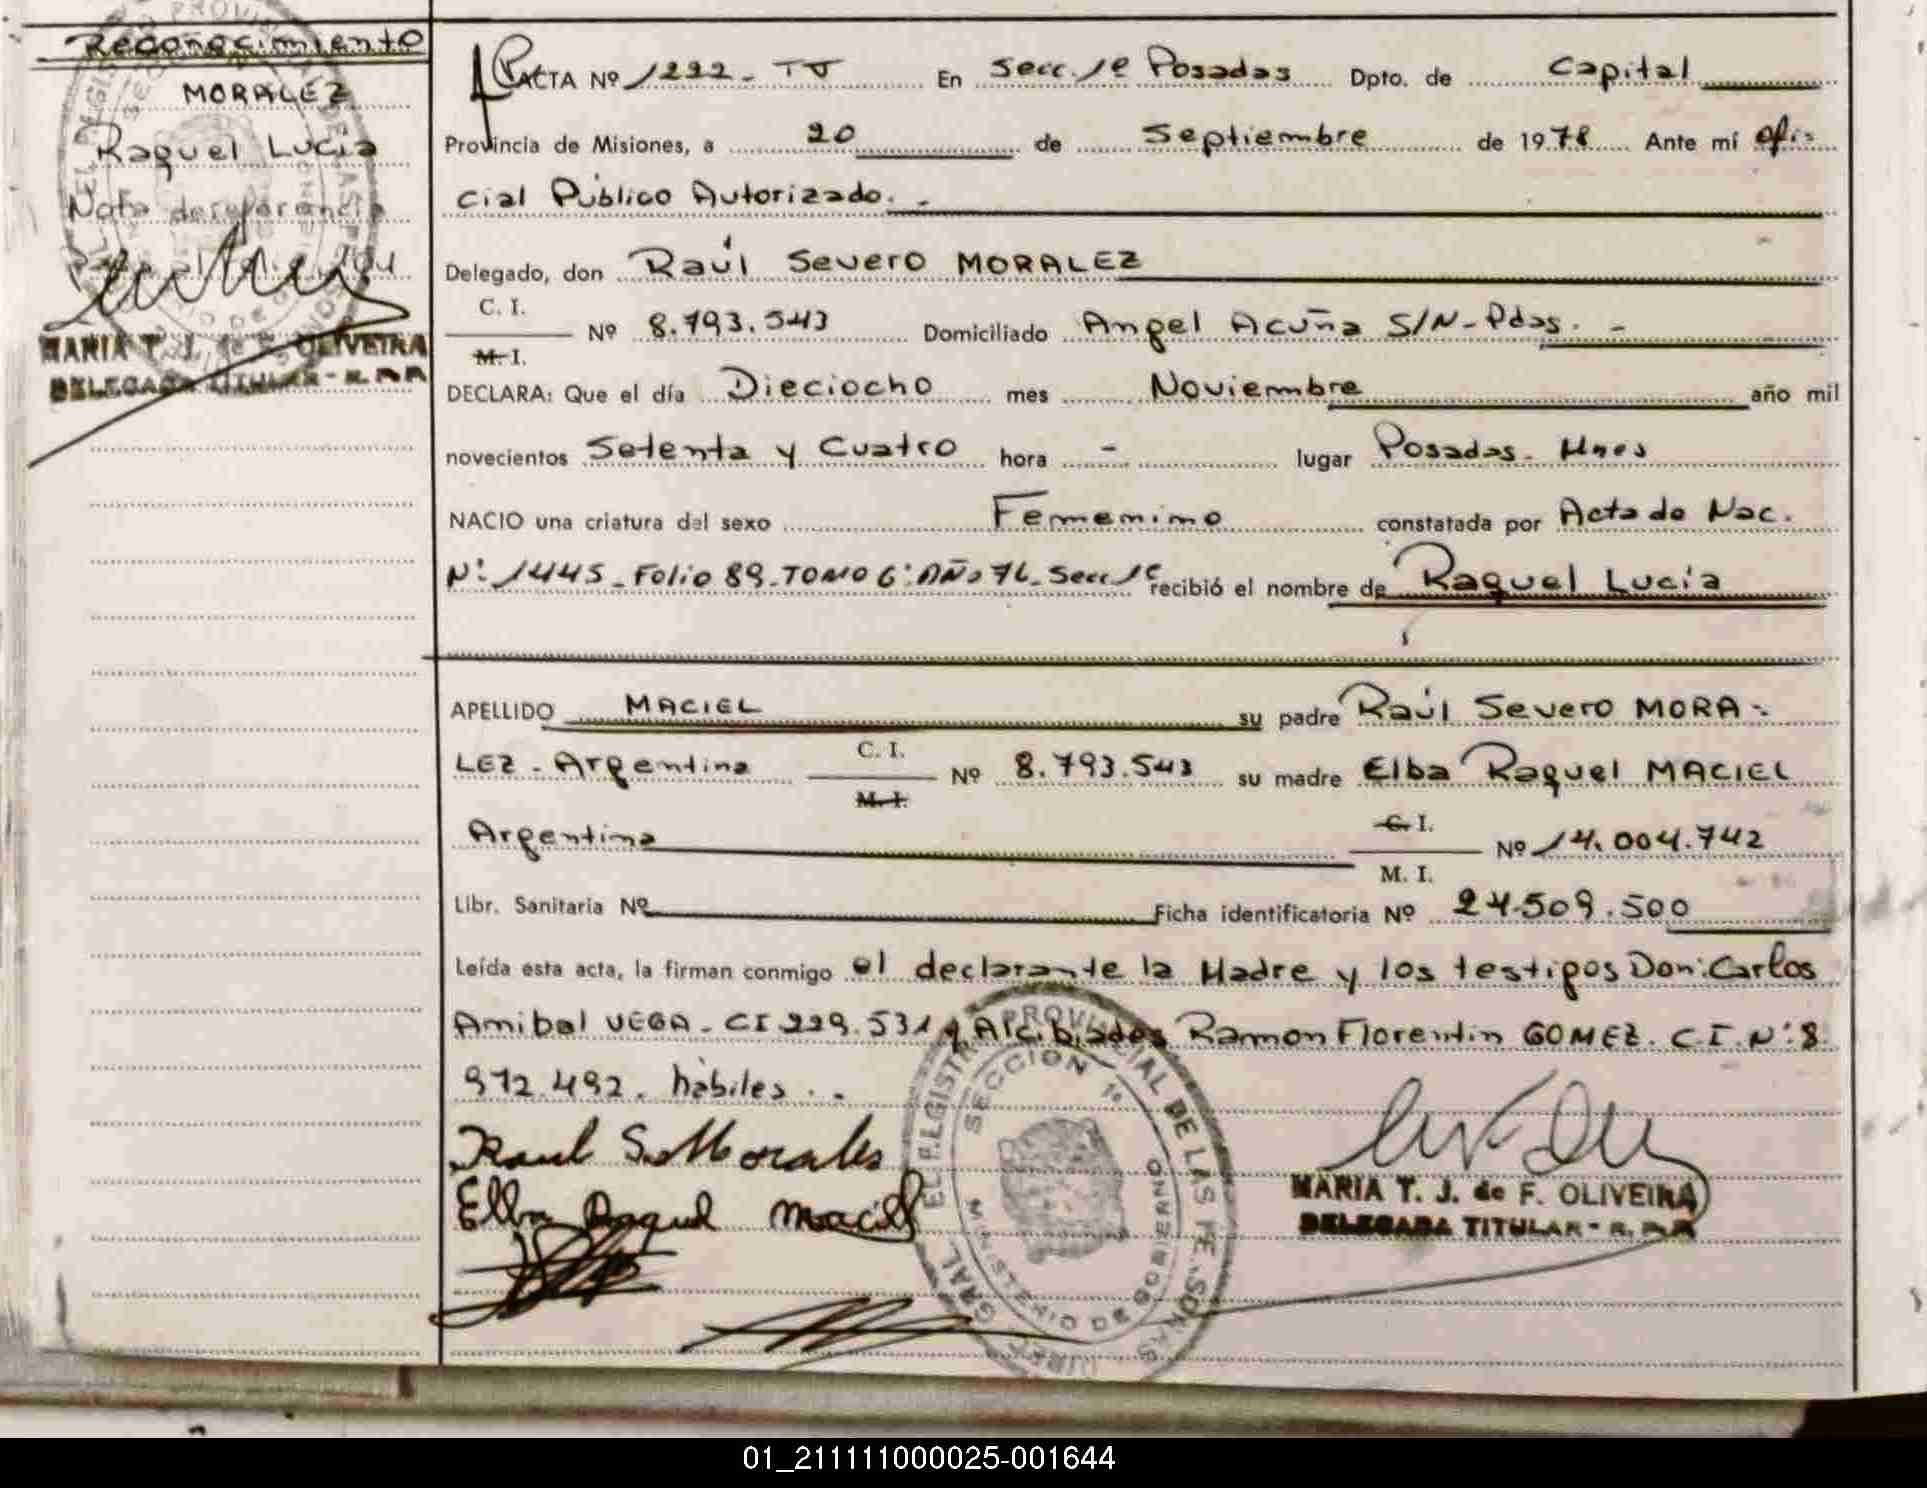 Reconocimiento
MORALEZ
Raquel Lucia
Nota de referencia
MARIA T. J. de F. OLIVEIRA
DELEGADA TITULAR - R. P. P.
ACTA Nº 1292 - TJ En Secc. 1ª Posadas Dpto. de Capital
Provincia de Misiones, a 20 de Septiembre de 1978 Ante mí ofi-
cial Público Autorizado. -
Delegado, don Raúl Severo MORALEZ
C. I.
M. I.
Nº 8.793.543 Domiciliado Angel Acuña S/N - Pdas. -
DECLARA: Que el día Dieciocho mes Noviembre año mil
novecientos Setenta y Cuatro hora - lugar Posadas - Mnes
NACIO una criatura del sexo Femenino constatada por Acta de Nac.
Nº 1445 - Folio 89 - TOMO 6º AÑO 76 - Secc 1ª recibió el nombre de Raquel Lucía
APELLIDO MACIEL su padre Raúl Severo MORA -
LEZ - Argentina C. I. Nº 8.793.543 su madre Elba Raquel MACIEL
M. I.
Argentina C. I. Nº 14.004.742
M. I.
Libr. Sanitaria Nº Ficha identificatoria Nº 24.509.500
Leída esta acta, la firman conmigo el declarante la Madre y los testigos Don: Carlos
Anibal VEGA - CI 229.531 y Alcibiades Ramon Florentin GOMEZ. C.I. Nº 8.
972.492. hábiles. -
Raul S. Morales
Elba Raquel Maciel
REGISTRO PROVINCIAL DE LAS PERSONAS
SECCION 1º
MINISTERIO DE GOBIERNO
MARIA T. J. de F. OLIVEIRA
DELEGADA TITULAR - R. P. P.
01_211111000025-001644